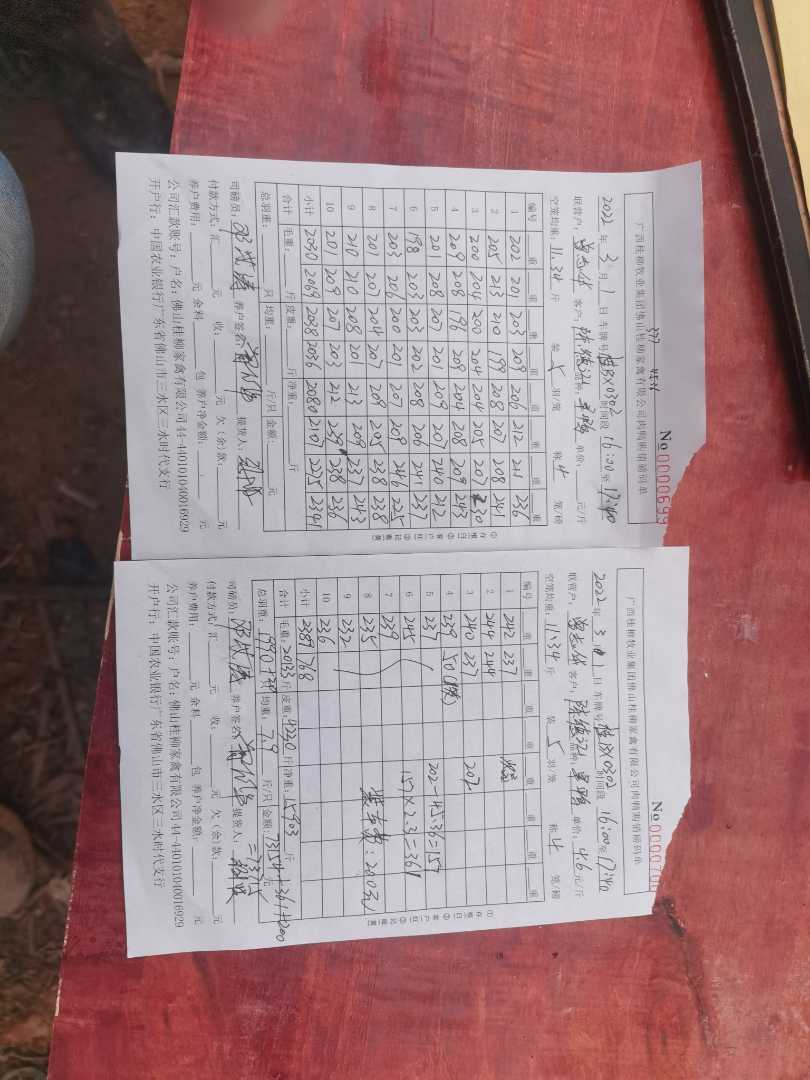 377 4541
广西桂柳牧业集团佛山桂柳家禽有限公司肉鸭购销磅码单
No 0000699
2022年 3 月 1 日 车牌号 桂BX0302 时间段 16:00 至 17:40
联营户: 曾志华 客户: 品种: 单价: 元/斤
空笼均重: 11.34 斤 装 5 羽/笼 称 4 笼/磅
编号 重 重 重 重 重 重 重 重
1 202 201 203 209 206 212 211 236
2 205 213 210 199 208 207 208 241
3 200 204 200 204 204 205 207 230
4 209 208 196 208 204 208 209 243
5 201 208 207 201 209 207 240 212
6 198 203 203 202 208 206 241 237
7 203 206 200 201 207 209 246 225
8 201 207 204 207 208 205 238 238
9 210 210 208 201 213 209 237 243
10 201 209 207 203 212 238 236
小计 2030 2069 2038 2036 2080 2107 2275 2341
合计 毛重: 斤 皮重: 斤 净重: 斤
总羽重: 只 均重: 斤/只 金额: 元
司磅员: 养户签名: 提货人:
付款方式: 汇 元 收: 元 欠(余)款: 元
养户费用: 元 余料 包 养户净金额: 元
公司汇款账号: 户名: 佛山桂柳家禽有限公司 44-440101040016929
开户行: 中国农业银行广东省佛山市三水区三水时代支行
广西桂柳牧业集团佛山桂柳家禽有限公司肉鸭购销磅码单
No 00007
2022年 3 月 1 日 车牌号 桂BX0302 时间段 16:00 至 17:40
联营户: 曾志华 客户: 品种: 单价: 4.6 元/斤
空笼均重: 11.34 斤 装 5 羽/笼 称 4 笼/磅
编号 重 重 重 重 重 重 重 重
1 242 237
2 244 244
3 240 237 202
4 239 50
5 237 202-45=157
6 245 157×2.3=361
7 239
8 235 200元
9 232
10 236
小计 2389 768
合计 毛重: 20133 斤 皮重: 4220 斤 净重: 15903 斤
总羽重: 只 均重: 7.9 斤/只 金额: 73154+361+200 元
司磅员: 养户签名: 提货人:
付款方式: 汇 元 收: 元 欠(余)款: 元
养户费用: 元 余料 包 养户净金额: 元
公司汇款账号: 户名: 佛山桂柳家禽有限公司 44-440101040016929
开户行: 中国农业银行广东省佛山市三水区三水时代支行